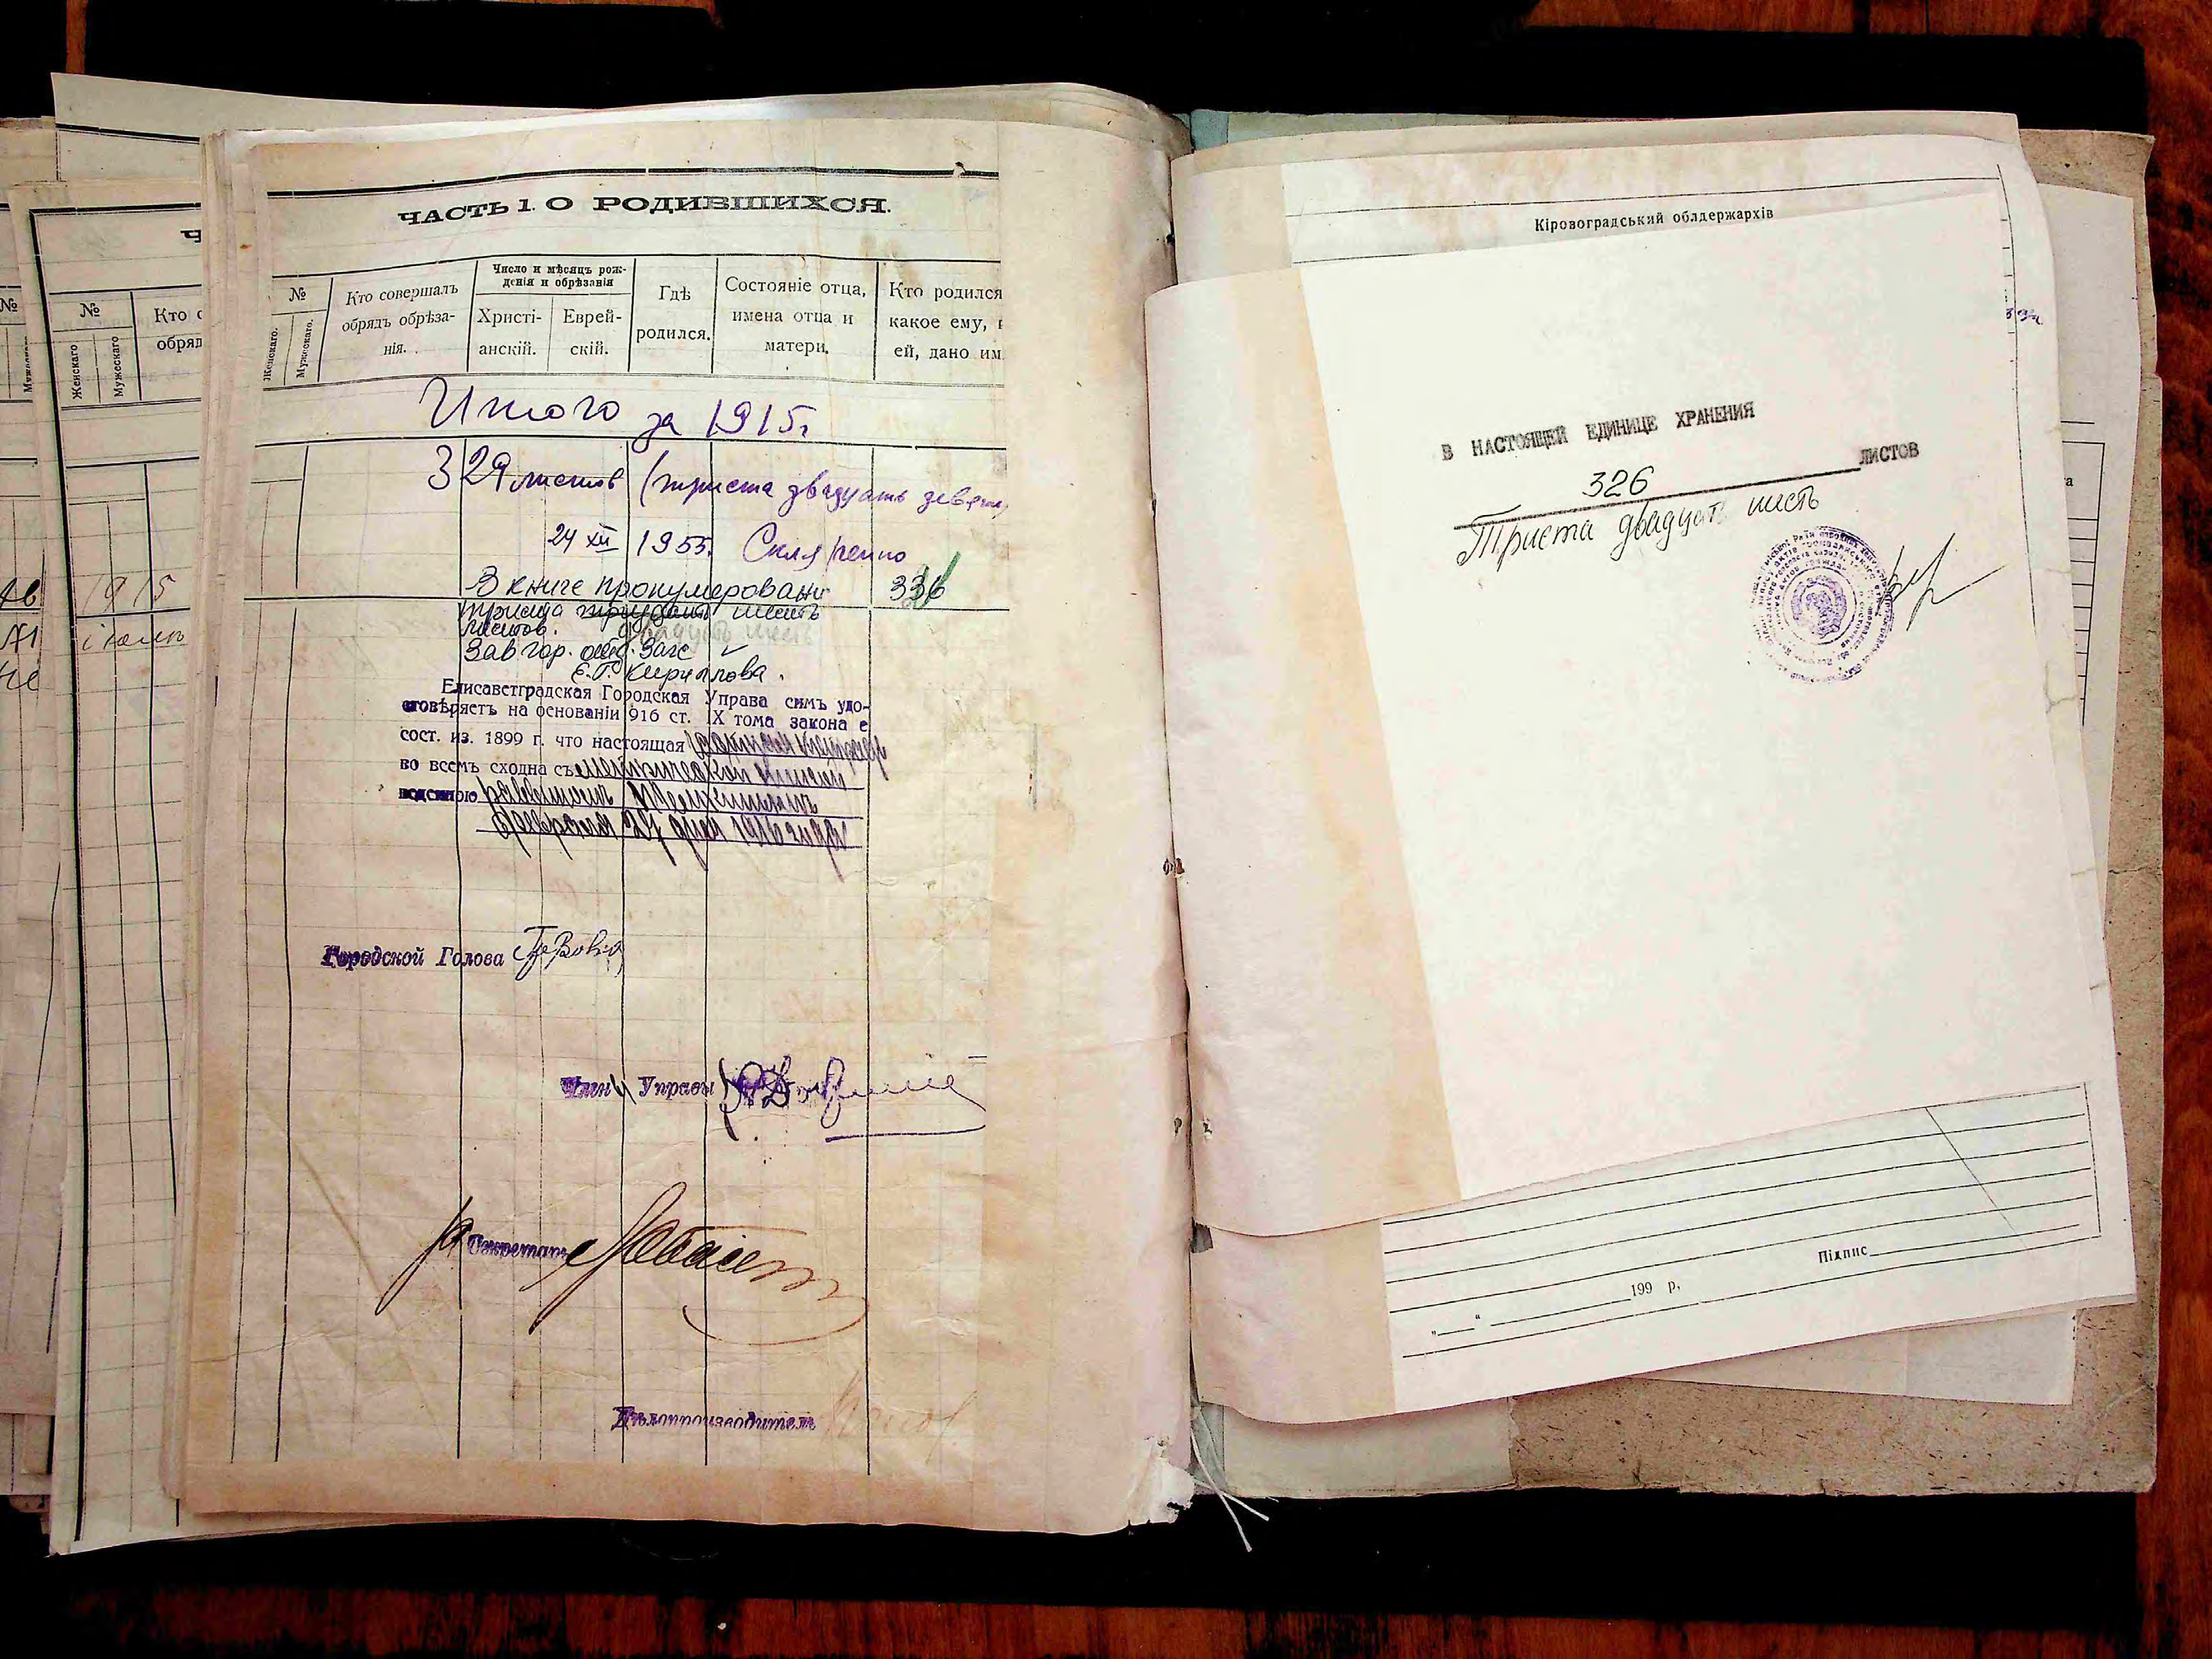 №
№
Женскаго
Мужескаго
Кто с
обряд
1915
ЧАСТЬ 1. О РОДИВШИХСЯ.
№
Женскаго.
Мужескаго.
Кто совершалъ
обрядъ обрѣза-
нія.
Число и мѣсяцъ рож-
денія и обрѣзанія
Христі-
анскій.
Еврей-
скій.
Гдѣ
родился.
Состояніе отца,
имена отца и
матери.
Кто родился
какое ему, и
ей, дано им
Итого за 1915г
329 листов (триста двадцать девять
24 XII 1955. Скляренко
В книге пронумеровано 336
триста тридцать шесть
листов. двадцать шесть
Зав гор. отд. Загс
Е.Г. Кириллова.
Елисаветградская Городская Управа симъ удо-
стовѣряетъ на основаніи 916 ст. IX тома закона о
сост. из. 1899 г. что настоящая
во всемъ сходна съ метрическою книгою
февраля 27 дня 1916 года
Городской Голова
Члены Управы
Секретарь
Дѣлопроизводитель
Кіровоградський облдержархів
В НАСТОЯЩЕЙ ЕДИНИЦЕ ХРАНЕНИЯ
326 ЛИСТОВ
Триста двадцать шесть
Підпис
„ “ 199 р.